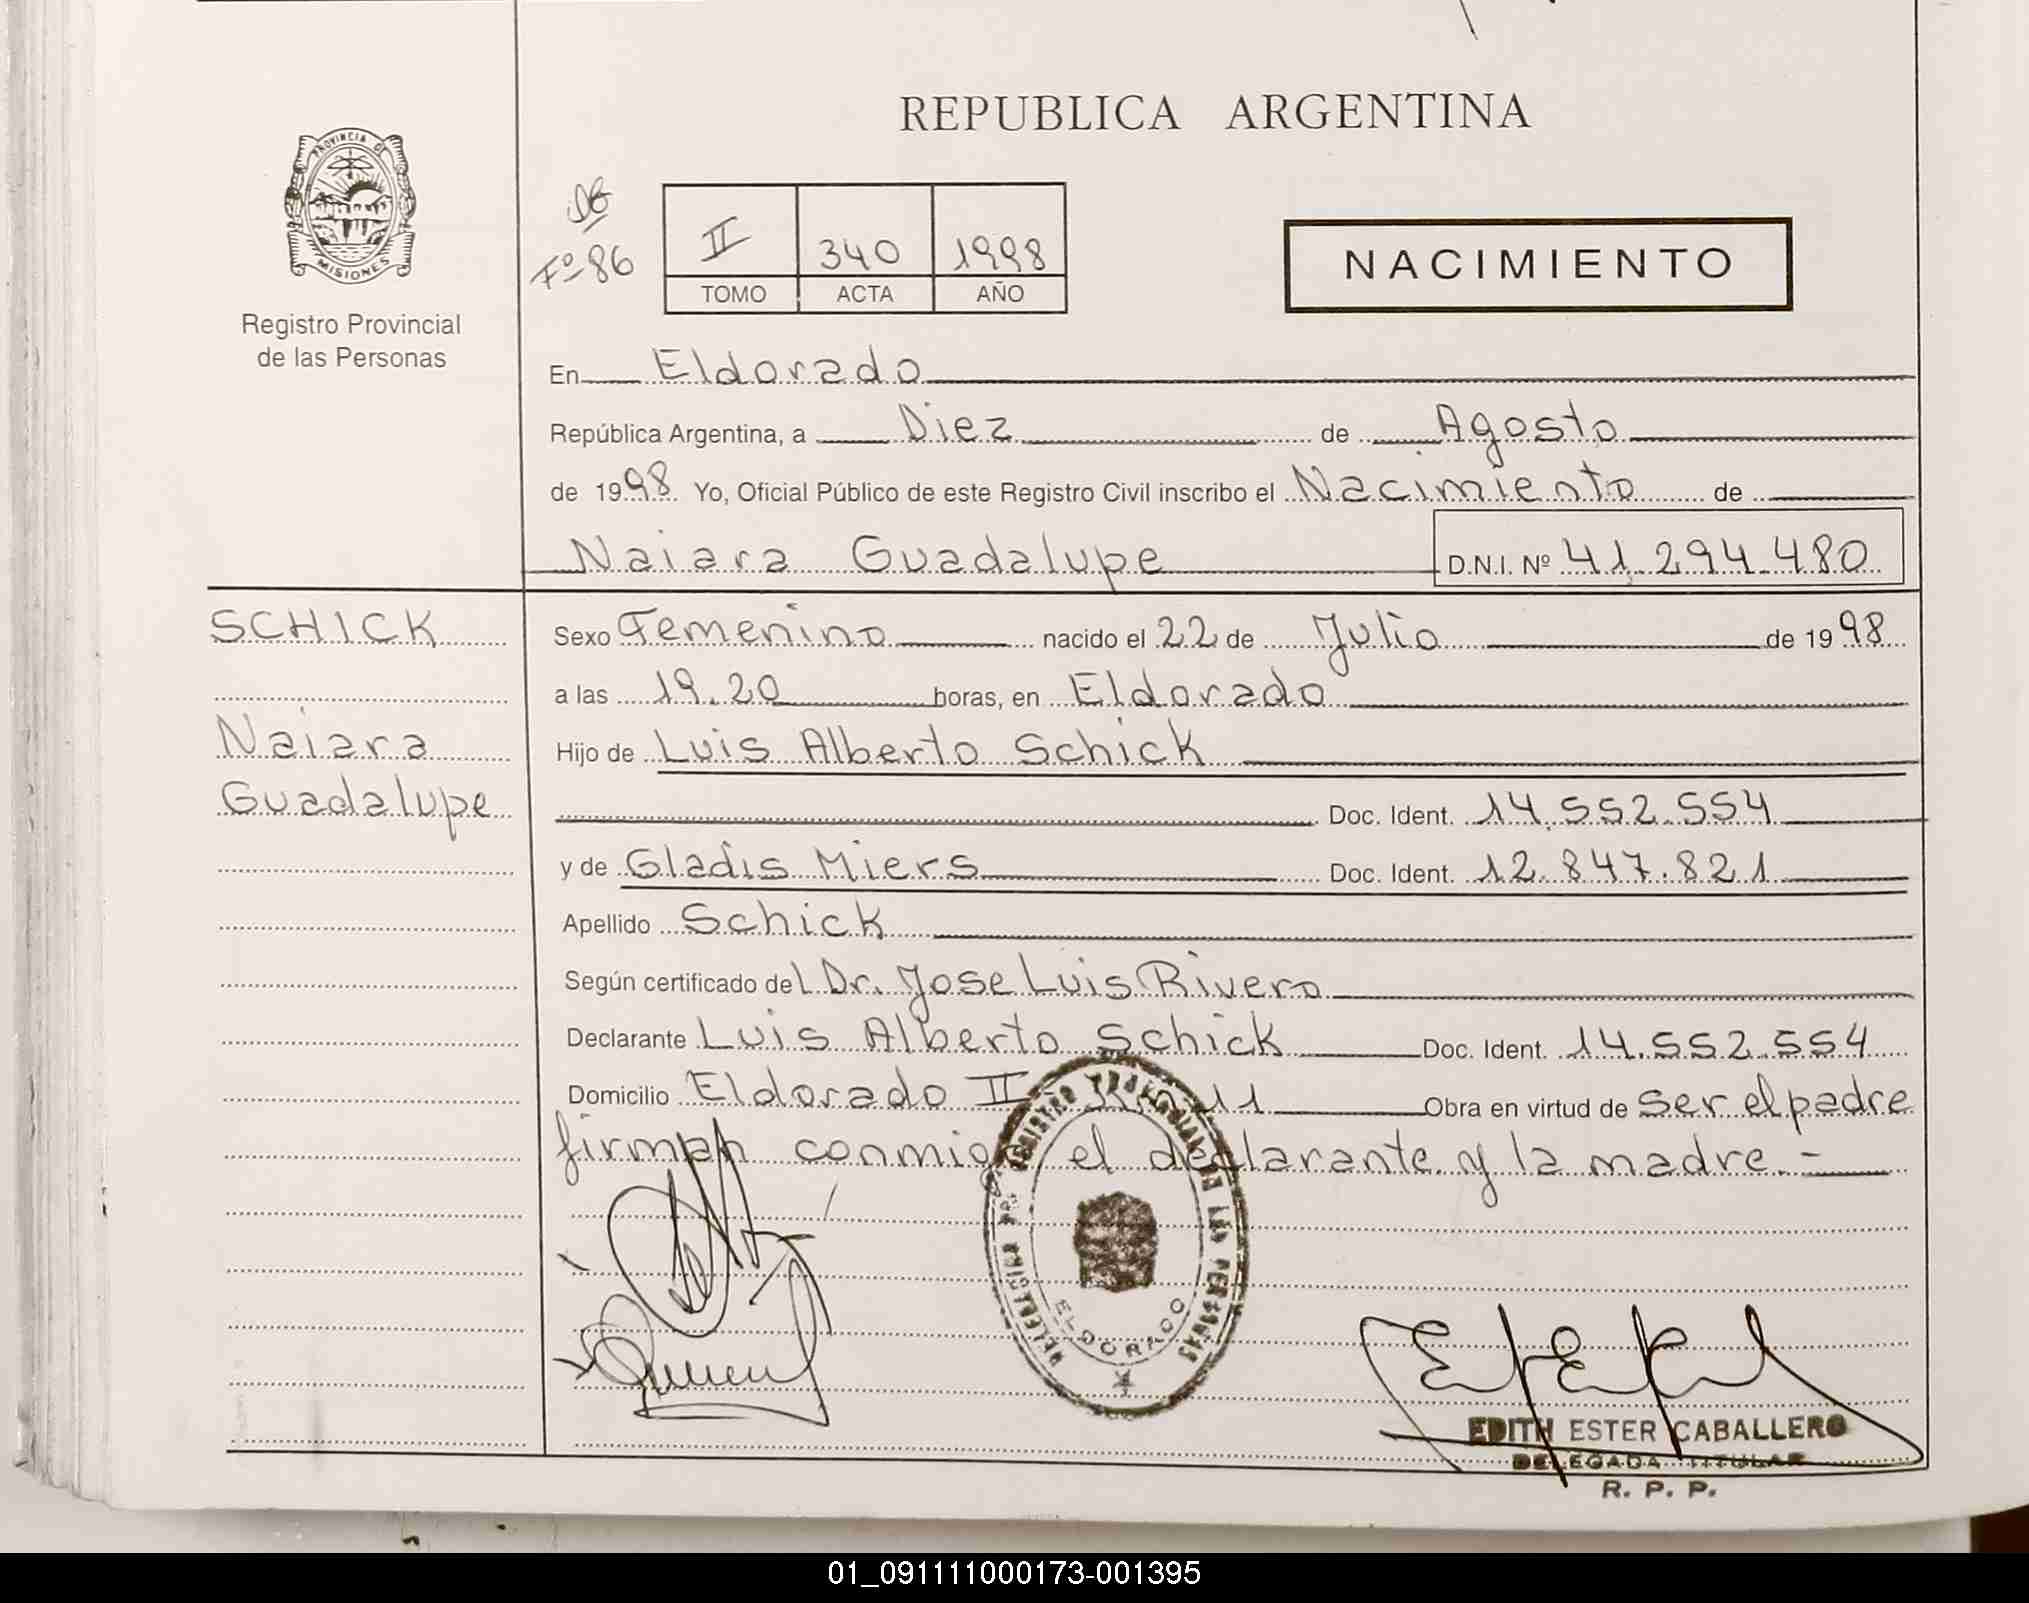 REPUBLICA ARGENTINA
PROVINCIA DE
MISIONES
Registro Provincial
de las Personas
Fº 86
II 340 1998
TOMO ACTA AÑO
NACIMIENTO
En Eldorado
República Argentina, a Diez de Agosto
de 1998 Yo, Oficial Público de este Registro Civil inscribo el Nacimiento de
Naiara Guadalupe D.N.I. Nº 41.294.480
SCHICK
Naiara
Guadalupe
Sexo Femenino nacido el 22 de Julio de 1998
a las 19.20 horas, en Eldorado
Hijo de Luis Alberto Schick
Doc. Ident. 14.552.554
y de Gladis Miers Doc. Ident. 12.847.821
Apellido Schick
Según certificado del Dr. Jose Luis Rivero
Declarante Luis Alberto Schick Doc. Ident. 14.552.554
Domicilio Eldorado II 11 Obra en virtud de ser el padre
firman conmigo el declarante y la madre.-
ELDORADO
EDITH ESTER CABALLERO
DELEGADA TITULAR
R. P. P.
01_091111000173-001395